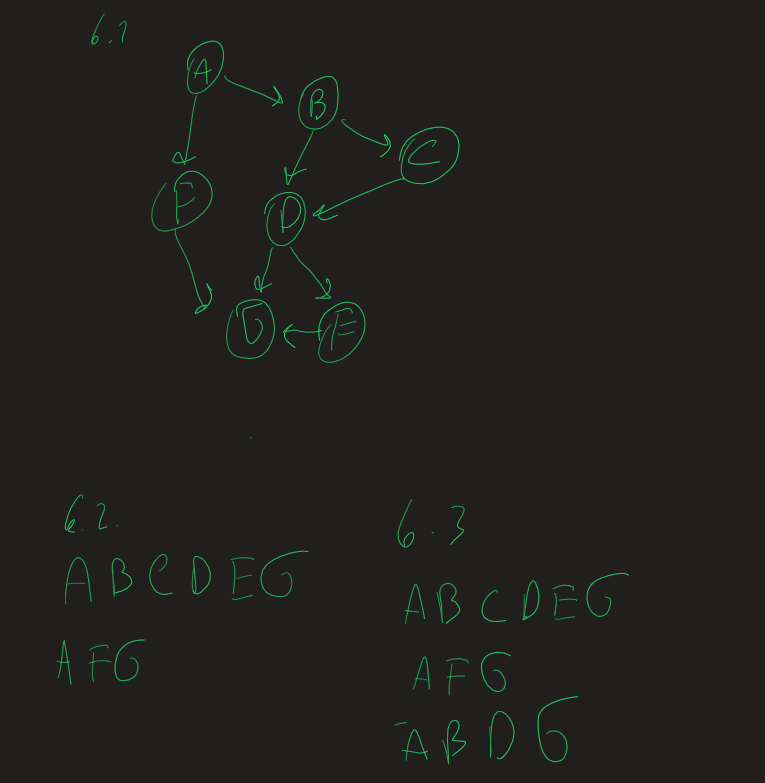 6.1
A
B
C
F
D
G
E
6.2.
ABCDEG
AFG
6.3
ABCDEG
AFG
ABDG